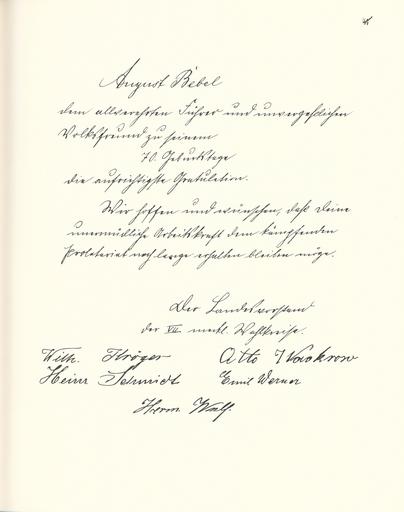 August Bebel
dem allverehrten Führer und unvergeßlichen
Volksfreund zu seinem
70. Geburtstage
die aufrichtigste Gratulation.
Wir hoffen und wünschen, daß Deine
unermüdliche Arbeitskraft dem kämpfenden
Proletariat noch lange erhalten bleiben möge.
Der Landesvorstand
der VII meckl. Wahlkreise.
Wilh. Kröger Otto
Heinr Schmidt Emil Werner
Herm Wulf.